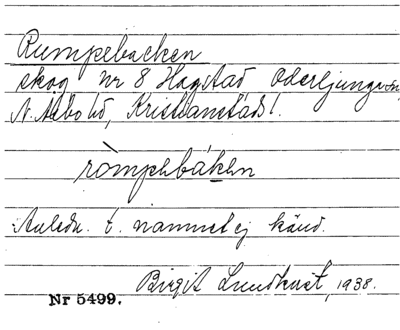 Rumpebacken
skog nr 8 Hagstad Oderljunga sn,
N. Åsbo hd, Kristianstads l.
ròmpebáken
Anledn. t. namnet ej känd.
Birgit Lundkvist, 1938.
Nr 5499.